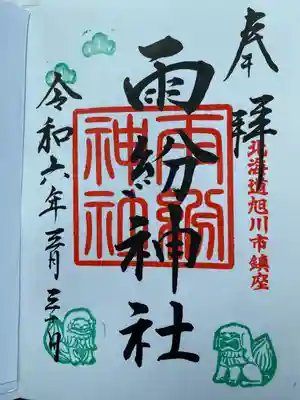 奉拝
北海道旭川市鎮座
雨紛神社
雨紛神社
令和六年